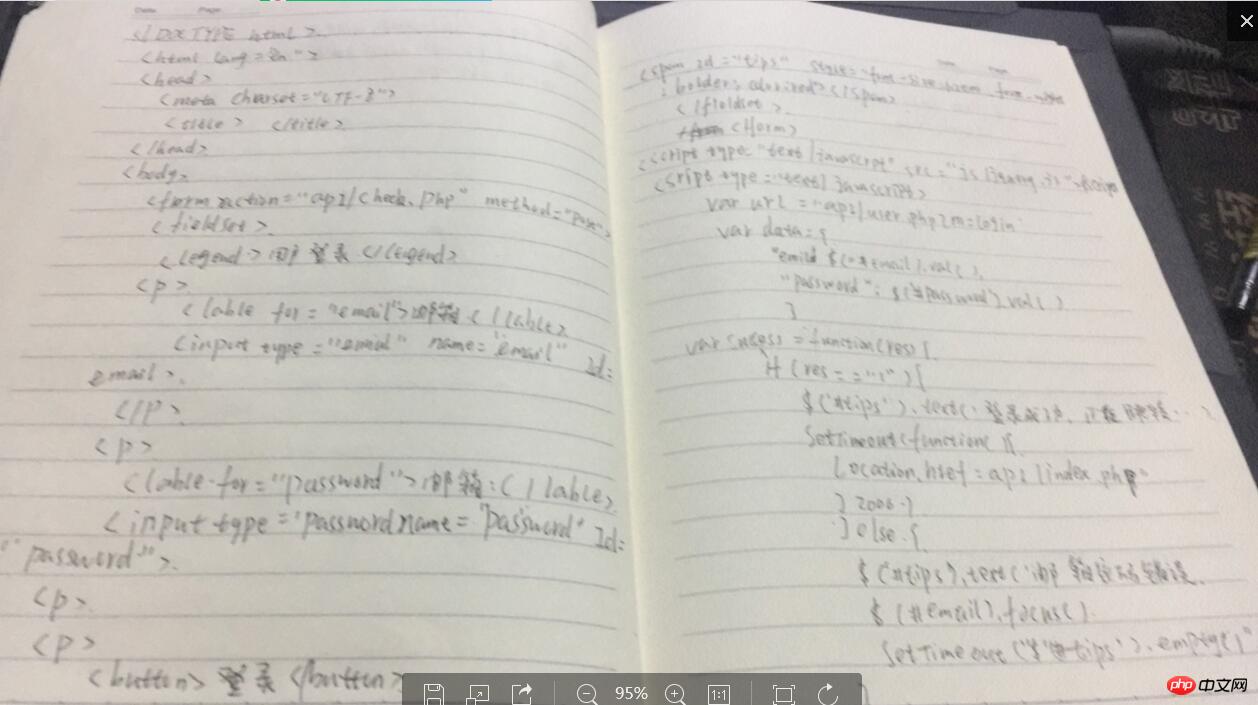 <!DOCTYPE html>
<html lang="en">
<head>
<meta charset="UTF-8">
<title> </title>
</head>
<body>
<form action="api/check.php" method="post">
<fieldset>
<legend>邮 登录</legend>
<p>
<lable for="email">邮箱</lable>
<input type="email" name="email" Id=
email>
</p>
<p>
<lable for="password">邮箱:</lable>
<input type="password name="password" Id=
"password">
<p>
<p>
<button>登录</button>
<span id="tips" style="font-size:
: bolder; </span>
</fieldset>
</form>
<script type="text/javascript" src="js
<sript type="text/javascript>
var url = "api/user.php?m=login
var data={
$("#email).val(),
"password": $('#password').val()
}
var =function(res){
if(res=="1"){
$('#tips').text('登录成功,正在跳转...
SetTimeout(function(){
Location.href=api/index.php"
} 2000)
}else{
$('#tips).text('邮箱 错误
$(#email).focus()
SetTimeout('$'#tips').empty()"
95%
1:1
php 中文网